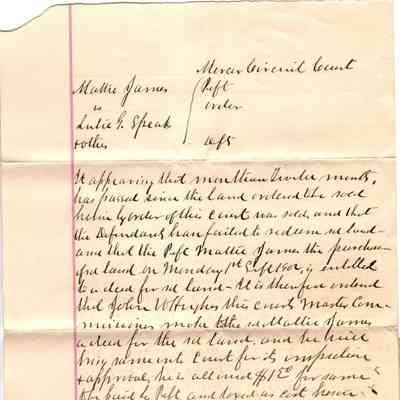 Mercer Circuit Court
Mattie James Plft
vs order
Lutie G. Speak
& others Deft
It appearing that more than Twelve months,
has passed since the land ordered to be sold
herein by order of this court was sold, and that
the Defendants have failed to redeem sd land
and that the Plft Mattie James the purchaser
of sd land on Monday 1st Sept 1902, is entitled
to a deed for sd land - It is therefore ordered
that John W Hughes this courts Master Com-
missioner make to the sd Mattie James
a deed for the sd land, and he will
bring same into Court for its inspection
& approval, he is allowed $1.50 for same
to be paid by Plft and taxed as cost herein